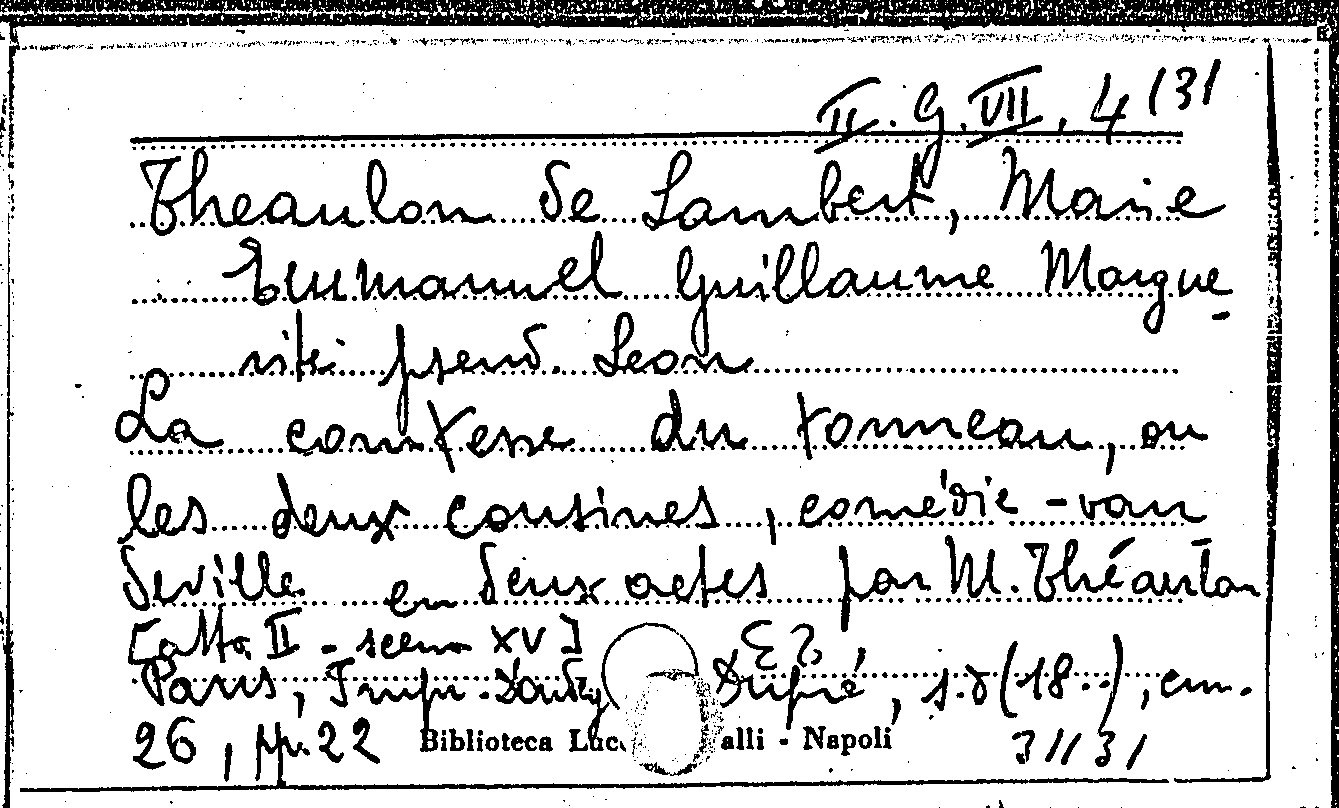 II. G. VII, 4 (3)
Theaulon de Lambert, Marie
Emmanuel Guillaume Margue-
riti pseud. Leon
La comtesse du tonneau, ou
les deux cousines, comédie-vau-
deville en deux actes par M. Théaulon
[atto II - scena XV]
Paris, Impr. Dondey Dupré, s.d (18..), cm.
26, pp. 22
Biblioteca Luc alli - Napoli